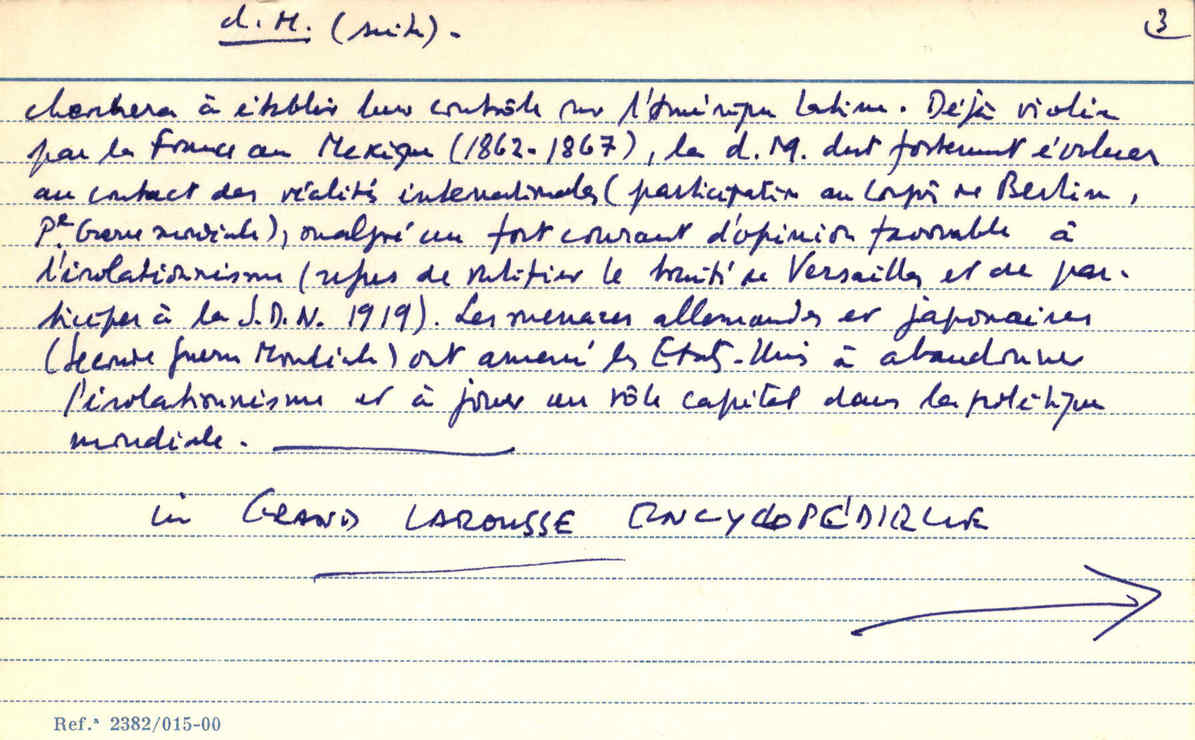 d. M. (suite).
3
cherchera à établir leur contrôle sur l'Amérique Latine. Déjà violée
par la France au Mexique (1862-1867), la d. M. dut fortement évoluer
au contact des réalités internationales (participation au Congrès de Berlin,
Pre Guerre mondiale), malgré un fort courant d'opinion favorable à
l'isolationnisme (refus de ratifier le traité de Versailles et de par-
ticiper à la S.D.N. 1919). Les menaces allemandes et japonaises
(Seconde Guerre Mondiale) ont amené les Etats-Unis à abandonner
l'isolationnisme et à jouer un rôle capital dans la politique
mondiale.
in GRAND LAROUSSE ENCYCLOPÉDIQUE
Ref.ª 2382/015-00